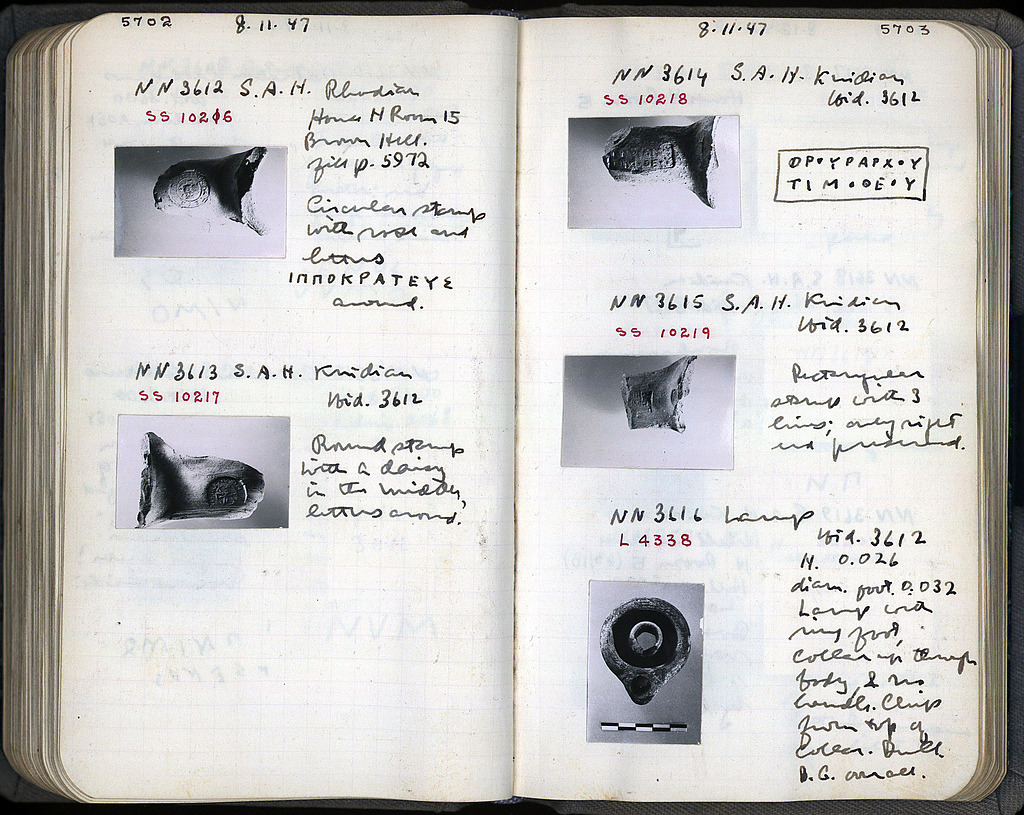 5702
8.11.47
NN 3612 S.A.H. Rhodian
SS 10216
House H Room 15
Brown Hell.
fill p. 5972
Circular stamp
with rose and
letters
ΙΠΠΟΚΡΑΤΕΥΣ
around.
NN 3613 S.A.H. Knidian
SS 10217
Ibid. 3612
Round stamp
with a daisy
in the middle,
letters around.
8.11.47
5703
NN 3614 S.A.H. Knidian
SS 10218
Ibid. 3612
ΦΡΟΥΡΑΡΧΟΥ
ΤΙΜΟΘΕΟΥ
NN 3615 S.A.H. Knidian
SS 10219
Ibid. 3612
Rectangular
stamp with 3
lines; only right
end preserved.
NN 3616 Lamp
L 4338
Ibid. 3612
H. 0.026
diam. foot 0.032
Lamp with
ring foot,
collar up through
body, & no
handle. Chips
from top of
collar. Dull
B.G. overall.